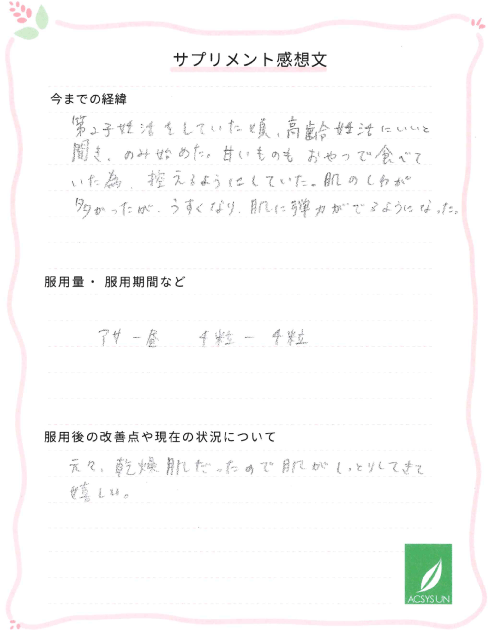 サプリメント感想文
今までの経緯
第2子妊活をしていた頃、高齢妊活にいいと
聞き、のみ始めた。甘いものもおやつで食べて
いた為、控えるようにしていた。肌のしわが
多かったが、うすくなり、肌に弾力がでるようになった。
服用量・服用期間など
アサ一昼 4粒ー4粒
服用後の改善点や現在の状況について
元々、乾燥肌だったので肌がしっとりしてきて
嬉しい。
ACSYS LIN